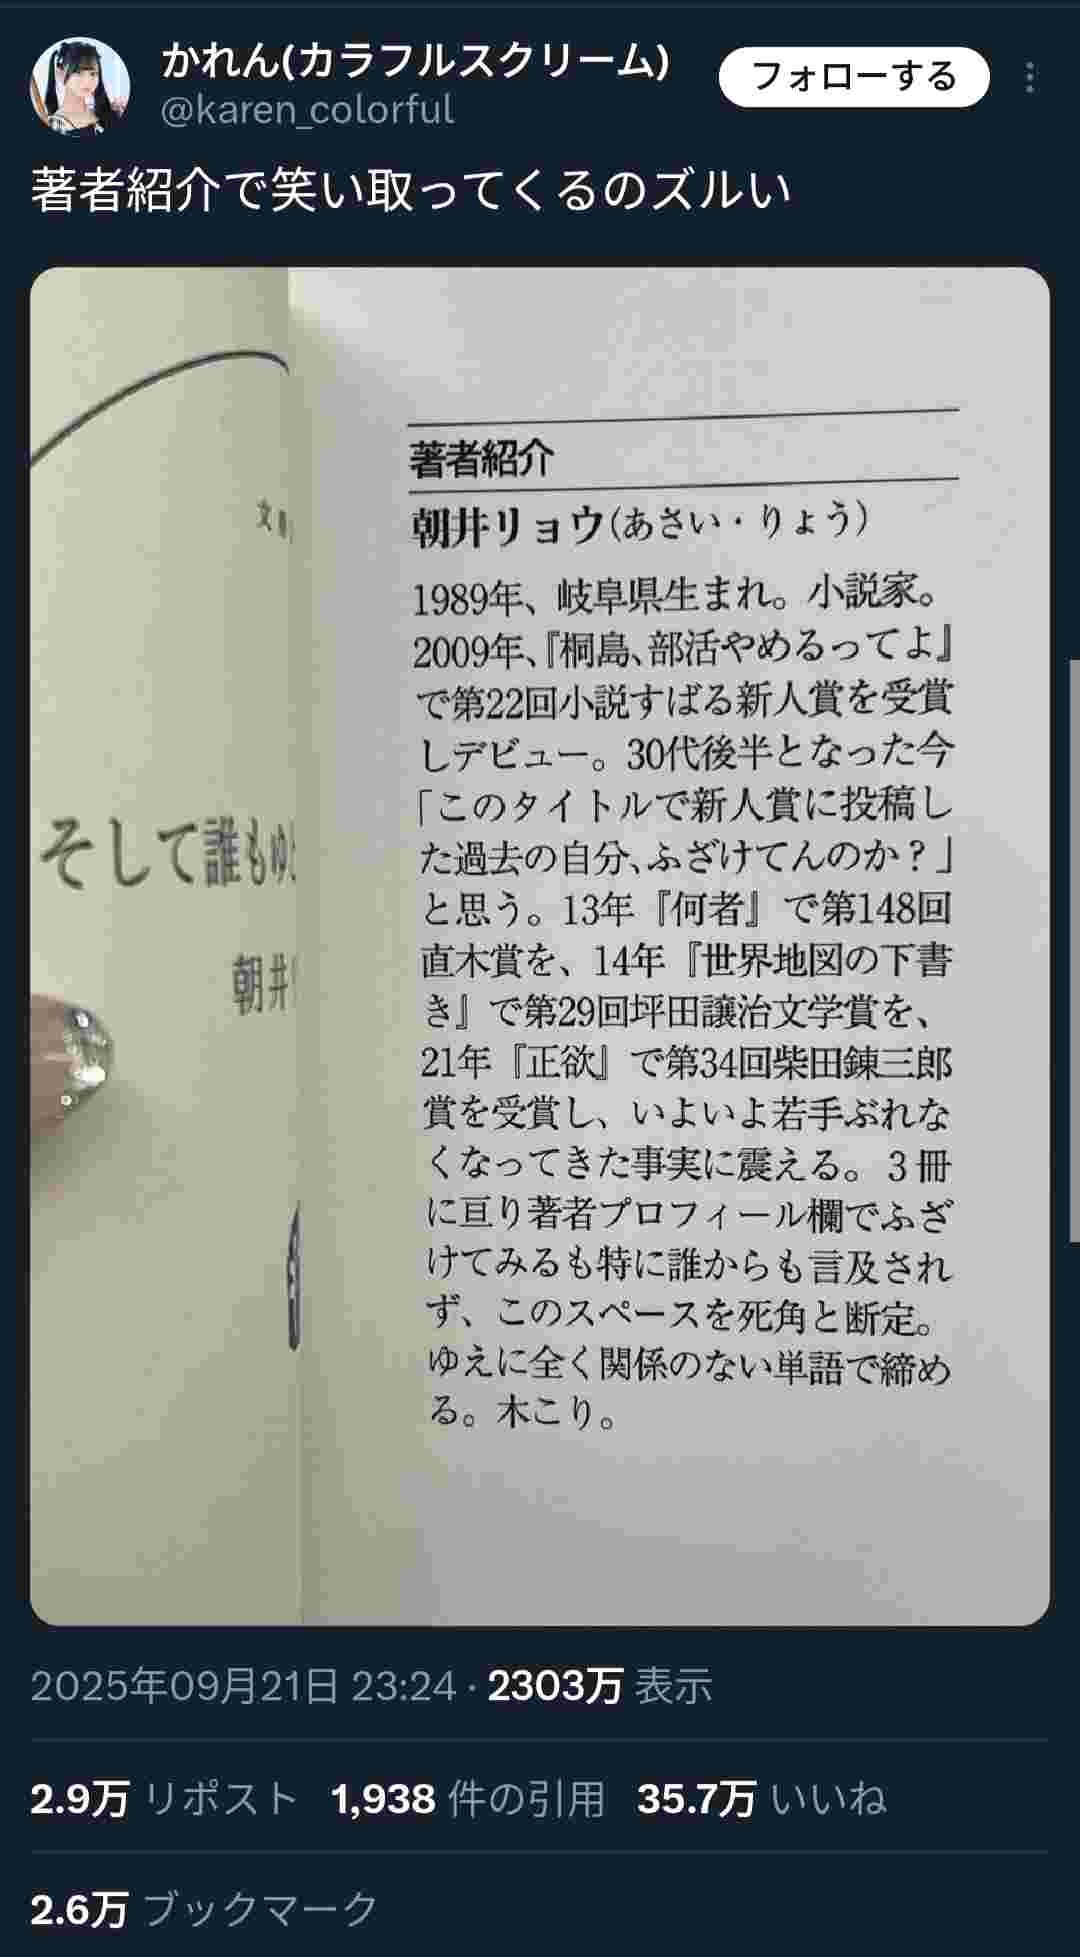 かれん(カラフルスクリーム)
@karen_colorful
フォローする
著者紹介で笑い取ってくるのズルい
文
そして誰もゆ
朝井
著者紹介
朝井リョウ(あさい・りょう)
1989年、岐阜県生まれ。小説家。
2009年、『桐島、部活やめるってよ』
で第22回小説すばる新人賞を受賞
しデビュー。30代後半となった今
「このタイトルで新人賞に投稿し
た過去の自分、ふざけてんのか?」
と思う。13年『何者』で第148回
直木賞を、14年『世界地図の下書
き』で第29回坪田譲治文学賞を、
21年『正欲』で第34回柴田錬三郎
賞を受賞し、いよいよ若手ぶれな
くなってきた事実に震える。3冊
に亘り著者プロフィール欄でふざ
けてみるも特に誰からも言及され
ず、このスペースを死角と断定。
ゆえに全く関係のない単語で締め
る。木こり。
2025年09月21日 23:24 · 2303万 表示
2.9万 リポスト 1,938 件の引用 35.7万 いいね
2.6万 ブックマーク